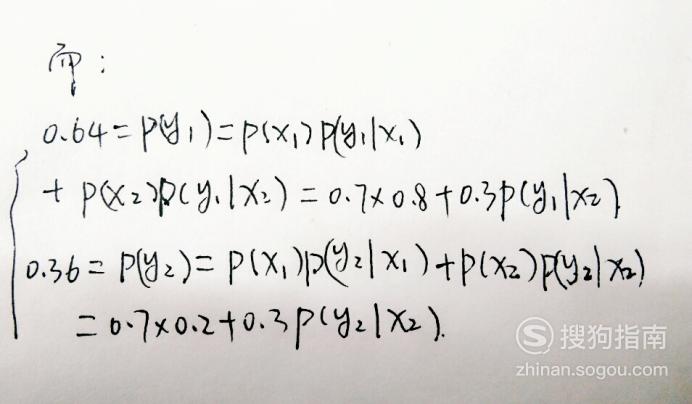 即:
0.64=p(y₁)=p(x₁)p(y₁|x₁)
+p(x₂)p(y₁|x₂)=0.7×0.8+0.3p(y₁|x₂)
0.36=p(y₂)=p(x₁)p(y₂|x₁)+p(x₂)p(y₂|x₂)
=0.7×0.2+0.3p(y₂|x₂).
搜狗指南
zhinan.sogou.com